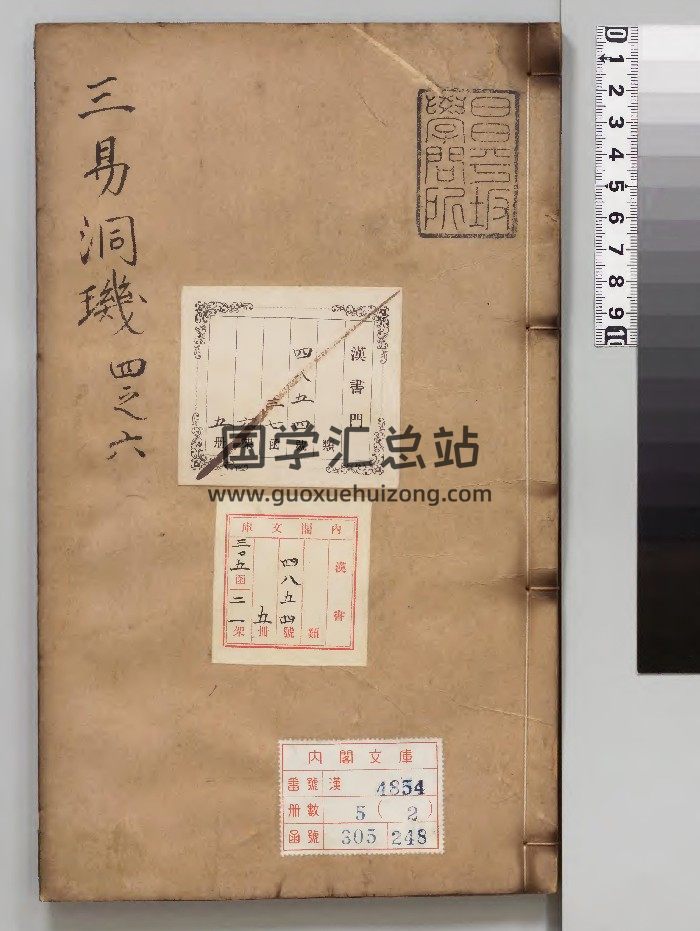 三易洞璣 四之六
昌平坂
學問所
漢書門
類
四八五四號
三七函
五册
国学汇总站
www.guoxuehuizong.com
內閣文庫
漢書
類
四八五四號
五冊
三〇五函
二一架
內閣文庫
番號 漢 4854
冊數 5(2)
函號 305 248
0 1 2 3 4 5 6 7 8 9 10